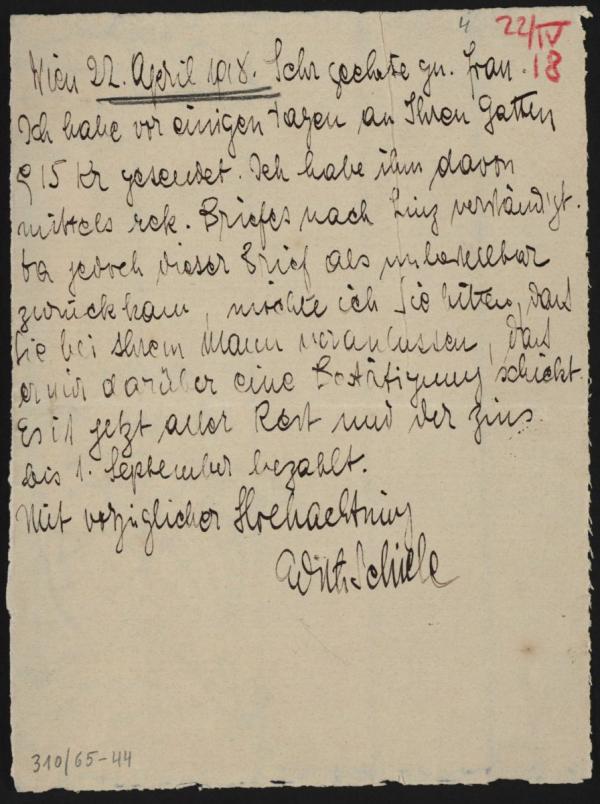 4
22/IV
18
Wien 22. April 1918. Sehr geehrte gn. Frau.
Ich habe vor einigen Tagen an Ihren Gatten
915 Kr gesendet. Ich habe ihm davon
mittels rek. Briefes nach Linz verständigt.
Da jedoch dieser Brief als unbestellbar
zurückkam, möchte ich Sie bitten, dass
Sie bei Ihrem Mann veranlassen, dass
er mir darüber eine Bestätigung schickt.
Es ist jetzt aller Rest und der Zins
bis 1. September bezahlt.
Mit vorzüglicher Hochachtung
Edith Schiele
310/65-44